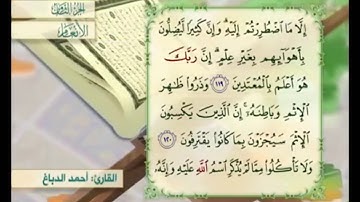 الجزء الثامن
الأنعام
إِلَّا مَا ٱضْطُرِرْتُمْ إِلَيْهِ وَإِنَّ كَثِيرًا لَّيُضِلُّونَ
بِأَهْوَآئِهِم بِغَيْرِ عِلْمٍ إِنَّ رَبَّكَ
هُوَ أَعْلَمُ بِٱلْمُعْتَدِينَ ١١٩ وَذَرُوا۟ ظَٰهِرَ
ٱلْإِثْمِ وَبَاطِنَهُۥٓ إِنَّ ٱلَّذِينَ يَكْسِبُونَ
ٱلْإِثْمَ سَيُجْزَوْنَ بِمَا كَانُوا۟ يَقْتَرِفُونَ ١٢٠
وَلَا تَأْكُلُوا۟ مِمَّا لَمْ يُذْكَرِ ٱسْمُ ٱللَّهِ عَلَيْهِ وَإِنَّهُۥ
القارئ: أحمد الدباغ